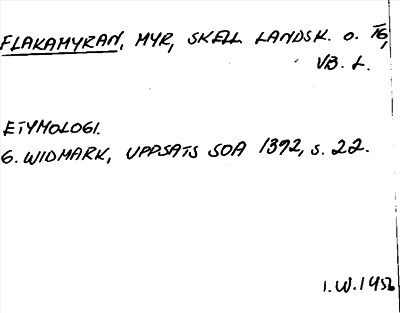 FLAKAMYRAN, MYR, SKELL LANDSK. O. 16,
VB. L.
ETYMOLOGI.
G. WIDMARK, UPPSATS SOA 1392, S. 22.
I.W. 1956